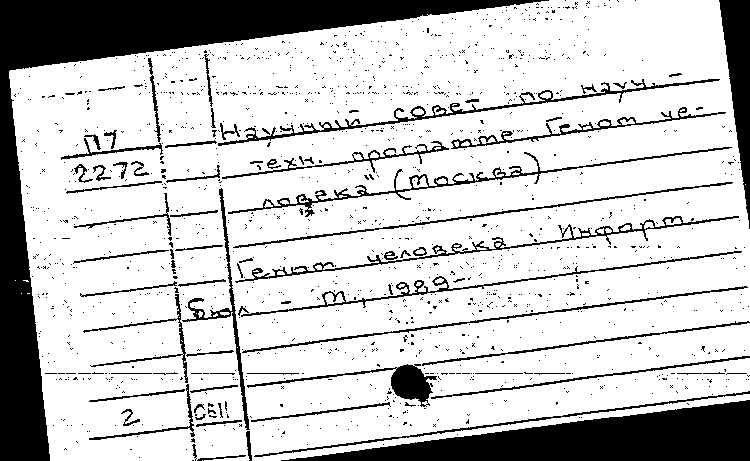 П7
2272
Научный совет по науч.-
техн. программе „Геном че-
ловека" (Москва)
Геном человека : Информ.
бюл. - М., 1989-
2